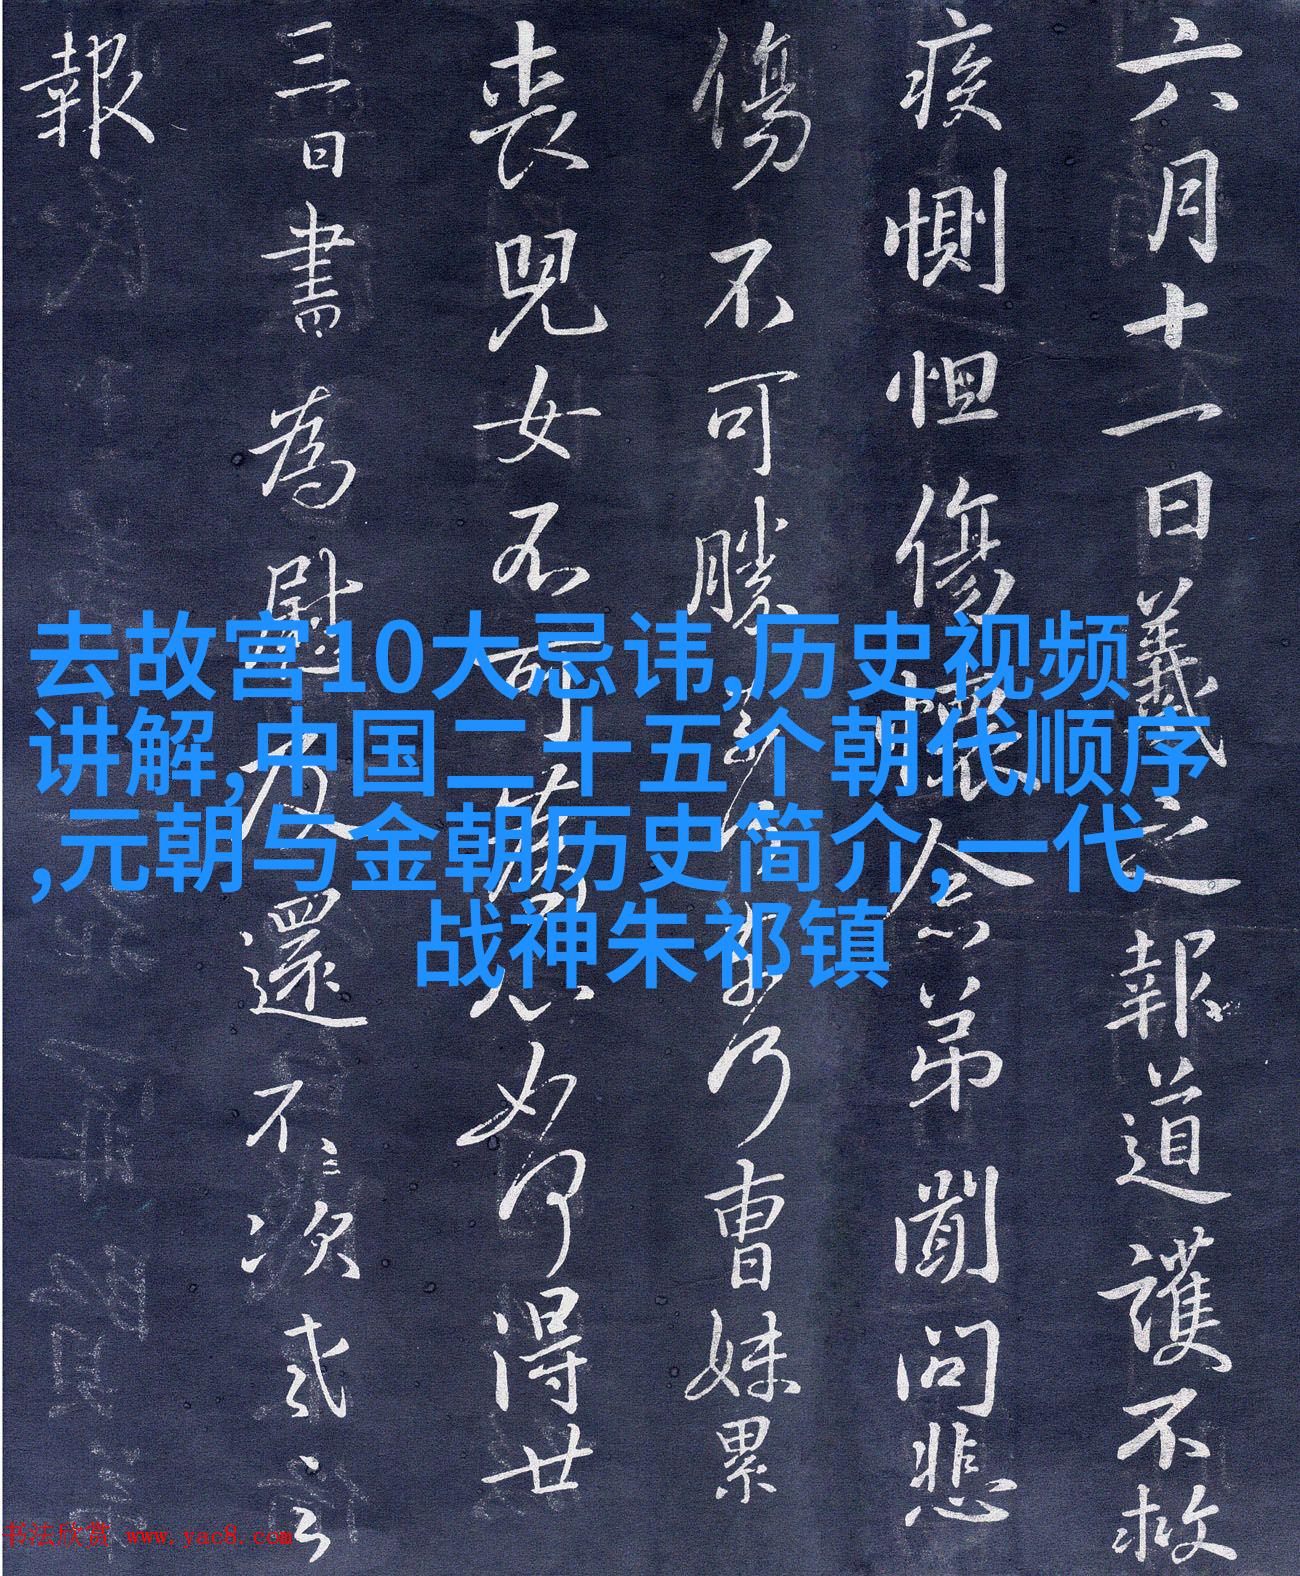 六月十一日羲之報道護不救
疾惻怛傷懷念弟聞問悲
傷不可勝乃曹妹累
喪兒女不可為心如何得廿
三日書為慰及還不次
報
去故宫10大忌讳,历史视频
讲解,中国二十五个朝代顺序
,元朝与金朝历史简介,一代
战神朱祁镇
书法欣赏 www.yac8.com